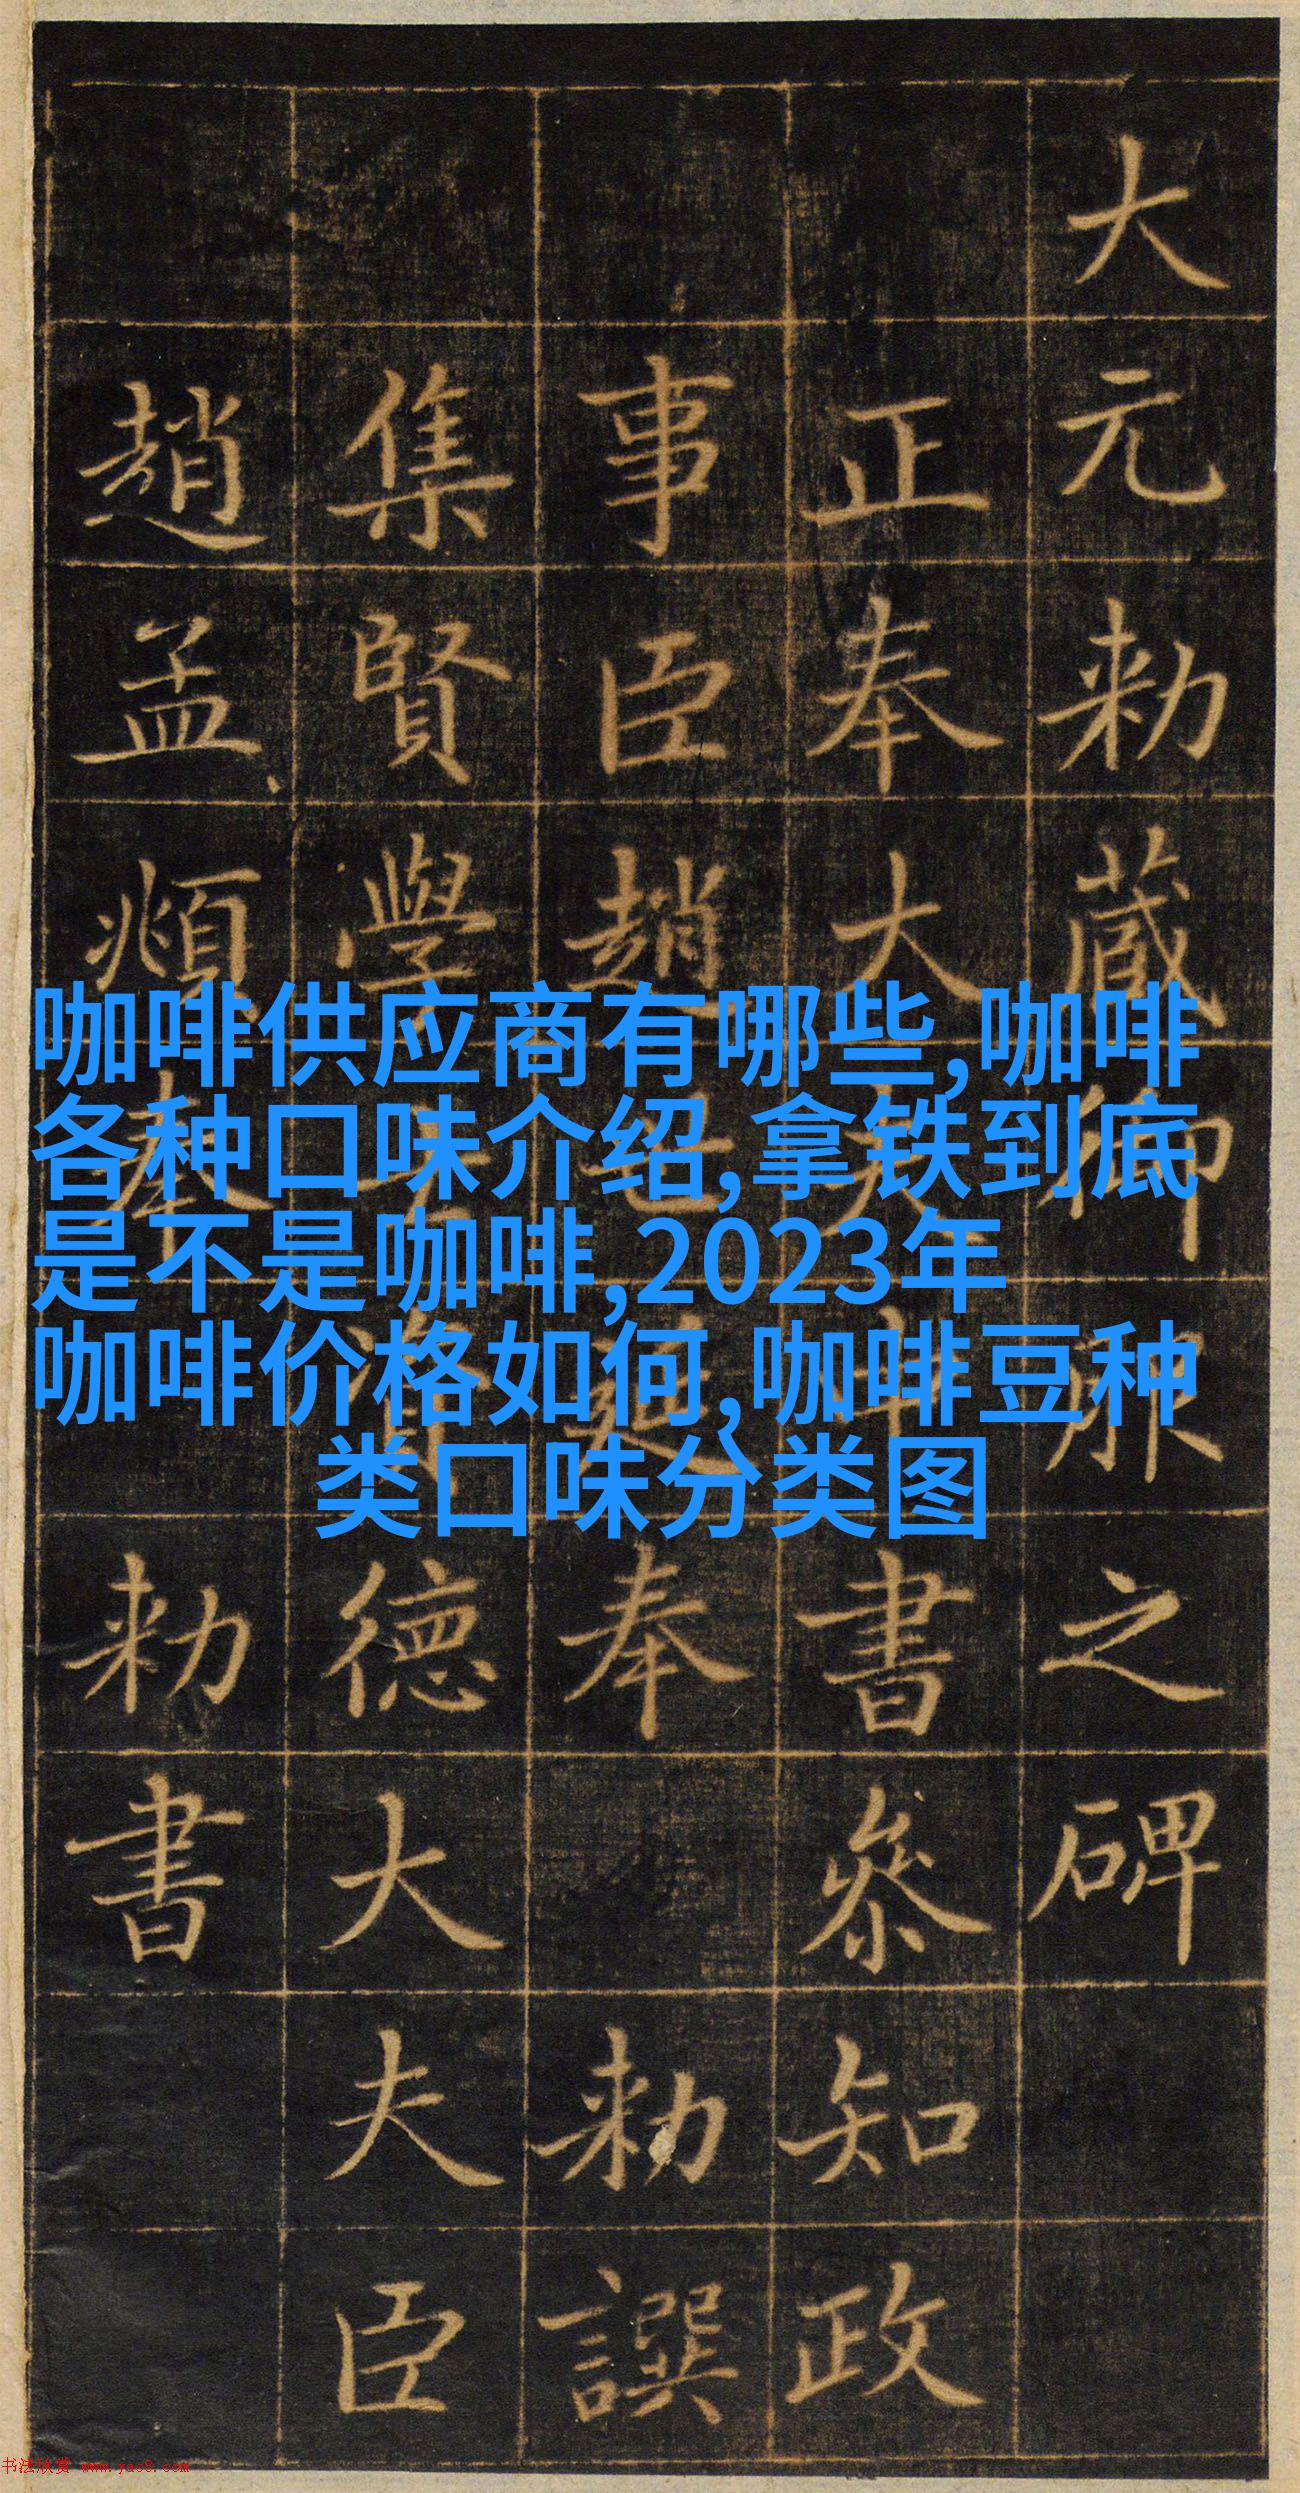 大元勅藏御服之碑
正奉大夫中書參知政
事臣趙世延奉勅譔
集賢學士資德大夫臣
趙孟頫奉勅書
咖啡供应商有哪些,咖啡
各种口味介绍,拿铁到底
是不是咖啡,2023年
咖啡价格如何,咖啡豆种
类口味分类图
书法欣赏 www.yac8.com